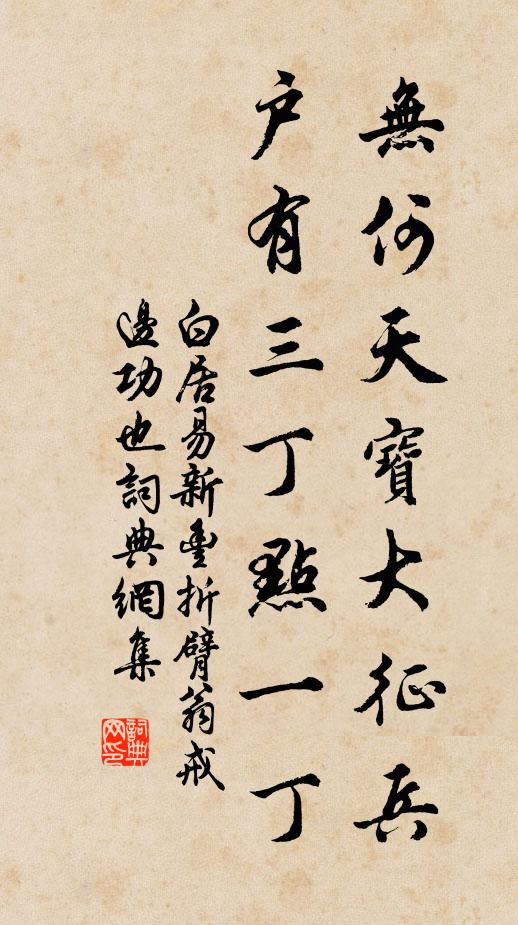 無何天寶大征兵
户有三丁點一丁
白居易新豐折臂翁戒
邊功也詞典網集
詞典網印